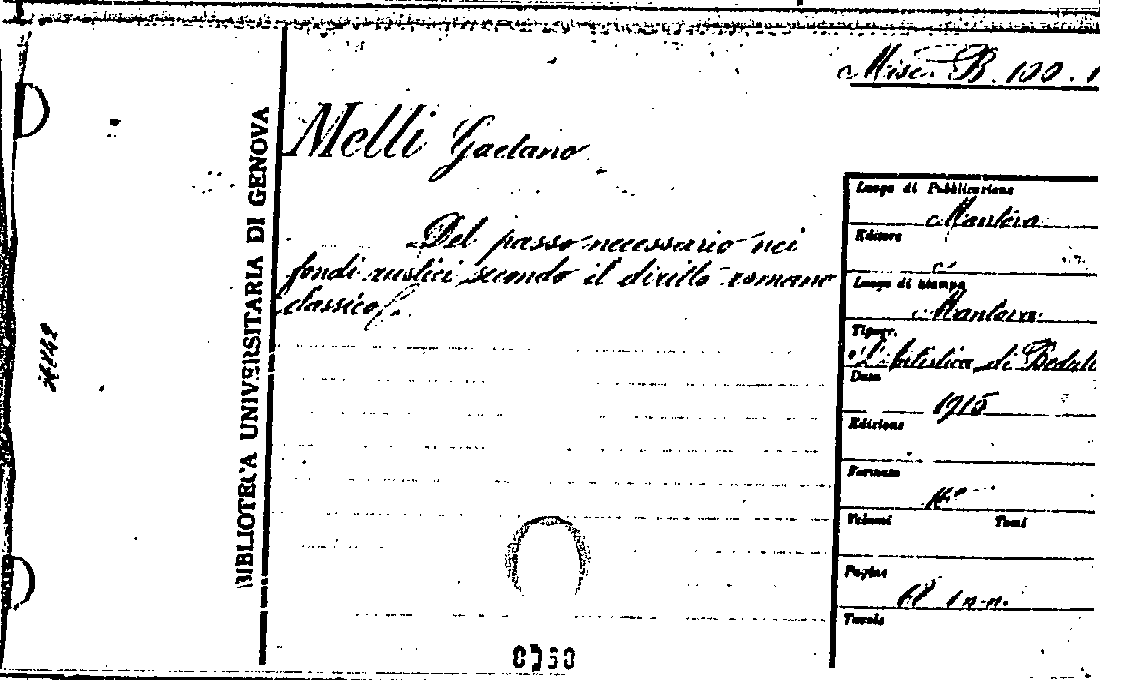 Misc. B. 100. 1
BIBLIOTECA UNIVERSITARIA DI GENOVA
Melli Gaetano
Del passo necessario nei
fondi rustici secondo il diritto romano
classico.
Luogo di Pubblicazione
Mantova
Editore
Luogo di stampa
Mantova
Tipogr.
L'Artistica di Bedul
Data
1915
Edizione
Formato
Volumi Tomi
Pagine
1 n.n.
Tavole